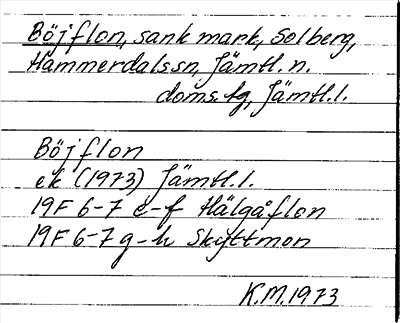 Böjflon, sank mark, Solberg,
Hammerdals sn, Jämtl. n.
doms.sg, Jämtl.l.
Böjflon
ek (1973) Jämtl.l.
19F 6-7 e-f Hälgåflon
19F 6-7 g-h Skyttmon
K.M.1973